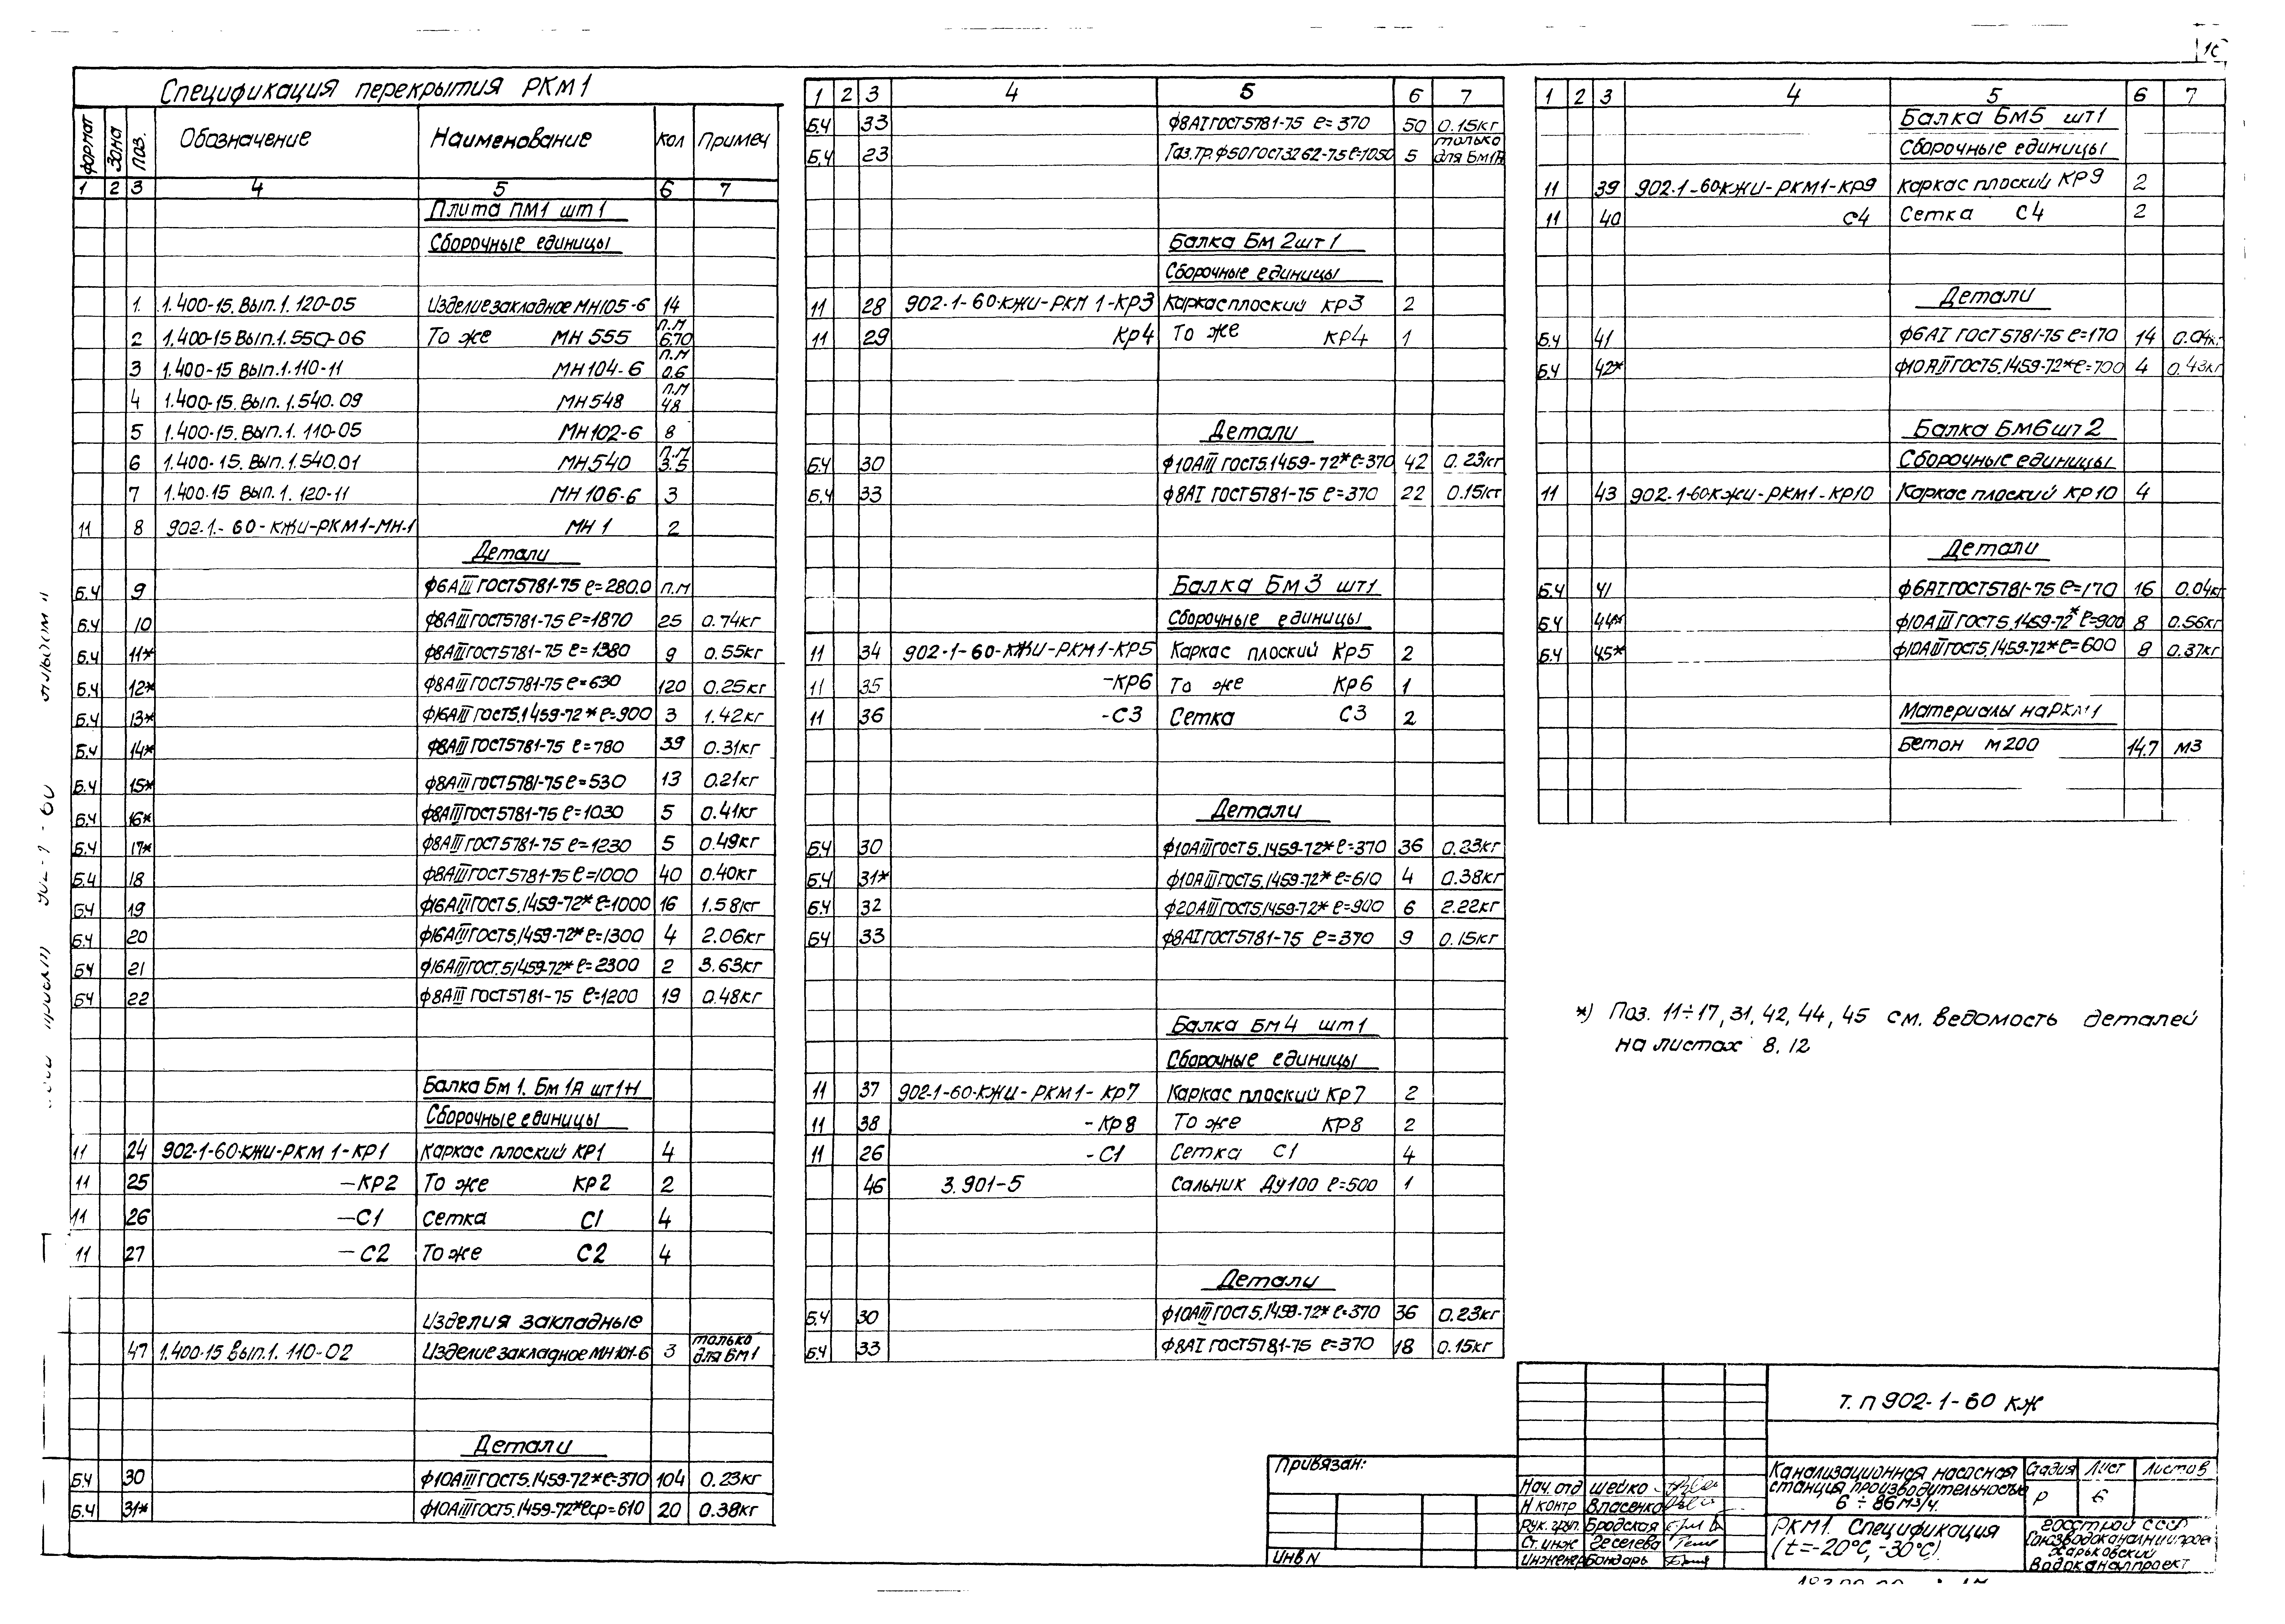 Спецификация перекрытия РКМ1
формат Зона поз. Обозначение Наименование Кол Примеч
1 2 3 4 5 6 7
Плита ПМ1 шт1
Сборочные единицы
1. 1.400-15. Вып.1. 120-05 Изделие закладное МН105-6 14
2 1.400-15 Вып.1. 550-06 То же МН 555 п.м 6.70
3 1.400-15 Вып.1. 110-11 МН104-6 п.м 0.6
4 1.400-15. Вып. 1. 540. 09 МН548 п.м 48
5 1.400-15. Вып. 1. 110-05 МН102-6 8
6 1.400-15. Вып. 1. 540.01 МН540 п.м 3.5
7 1.400-15 Вып. 1. 120-11 МН 106-6 3
11 8 902-1-60-КЖИ-РКМ1-МН-1 МН 1 2
Детали
Б.Ч 9 ф6АIII ГОСТ5781-75 ℓ=280.0 п.м
Б.Ч 10 ф8АIII ГОСТ5781-75 ℓ=1870 25 0.74кг
Б.Ч 11* ф8АIII ГОСТ5781-75 ℓ=1380 9 0.55кг
Б.Ч 12* ф8АIII ГОСТ5781-75 ℓ=630 120 0.25кг
Б.Ч 13* ф16АIII ГОСТ5.1459-72* ℓ=900 3 1.42кг
Б.Ч 14* ф8АIII ГОСТ5781-75 ℓ=780 39 0.31кг
Б.Ч 15* ф8АIII ГОСТ5781-75 ℓ=530 13 0.21кг
Б.Ч 16* ф8АIII ГОСТ5781-75 ℓ=1030 5 0.41кг
Б.Ч 17* ф8АIII ГОСТ5781-75 ℓ=1230 5 0.49кг
Б.Ч 18 ф8АIII ГОСТ5781-75 ℓ=1000 40 0.40кг
Б.Ч 19 ф16АIII ГОСТ5.1459-72* ℓ=1000 16 1.58кг
Б.Ч 20 ф16АIII ГОСТ5.1459-72* ℓ=1300 4 2.06кг
БЧ 21 ф16АIII ГОСТ.5.1459-72* ℓ=2300 2 3.63кг
БЧ 22 ф8АIII ГОСТ5781-75 ℓ=1200 19 0.48кг
Балка Бм 1. Бм 1А шт1+1
Сборочные единицы
11 24 902-1-60-КЖИ-РКМ 1-КР1 Каркас плоский КР1 4
11 25 -КР2 То же КР2 2
11 26 -С1 Сетка С1 4
11 27 -С2 То же С2 4
Изделия закладные
47 1.400-15 Вып.1. 110-02 Изделие закладное МН101-6 3 только для БМ1
Детали
Б.Ч 30 ф10АIII ГОСТ5.1459-72* ℓ=370 104 0.23кг
Б.Ч 31* ф10АIII ГОСТ5.1459-72* ℓср=610 20 0.38кг
1 2 3 4 5 6 7
Б.Ч 33 ф8АI ГОСТ5781-75 ℓ=370 50 0.15кг
Б.Ч 23 Газ.тр. ф50 ГОСТ3262-75 ℓ=1050 5 только для БМ1А
Балка Бм 2 шт 1
Сборочные единицы
11 28 902-1-60-КЖИ-РКМ 1-КР3 Каркас плоский КР3 2
11 29 Кр4 То же КР4 1
Детали
Б.Ч 30 ф10АIII ГОСТ5.1459-72* ℓ=370 42 0.23кг
Б.Ч 33 ф8АI ГОСТ5781-75 ℓ=370 22 0.15кг
Балка Бм 3 шт1
Сборочные единицы
11 34 902-1-60-КЖИ-РКМ1-КР5 Каркас плоский Кр5 2
11 35 -КР6 То же КР6 1
11 36 -С3 Сетка С3 2
Детали
Б.Ч 30 ф10АIII ГОСТ5.1459-72* ℓ=370 36 0.23кг
Б.Ч 31* ф10АIII ГОСТ5.1459-72* ℓ=610 4 0.38кг
Б.Ч 32 ф20АIII ГОСТ5.1459-72* ℓ=900 6 2.22кг
БЧ 33 ф8АI ГОСТ5781-75 ℓ=370 9 0.15кг
Балка Бм 4 шт1
Сборочные единицы
11 37 902-1-60-КЖИ-РКМ1-Кр7 Каркас плоский Кр7 2
11 38 -Кр8 То же КР8 2
11 26 -С1 Сетка С1 4
46 3.901-5 Сальник Ду100 ℓ=500 1
Детали
Б.Ч 30 ф10АIII ГОСТ5.1459-72* ℓ=370 36 0.23кг
Б.Ч 33 ф8АI ГОСТ5781-75 ℓ=370 18 0.15кг
1 2 3 4 5 6 7
Балка БМ5 шт1
Сборочные единицы
11 39 902-1-60-КЖИ-РКМ1-КР9 Каркас плоский КР9 2
11 40 С4 Сетка С4 2
Детали
Б.Ч 41 ф6АI ГОСТ5781-75 ℓ=170 14 0.04кг
Б.Ч 42* ф10АIII ГОСТ5.1459-72* ℓ=700 4 0.43кг
Балка Бм6 шт 2
Сборочные единицы
11 43 902-1-60-КЖИ-РКМ1-КР10 Каркас плоский КР10 4
Детали
Б.Ч 41 ф6АI ГОСТ5781-75 ℓ=170 16 0.04кг
Б.Ч 44* ф10АIII ГОСТ5.1459-72* ℓ=900 8 0.56кг
Б.Ч 45* ф10АIII ГОСТ5.1459-72* ℓ=600 8 0.37кг
Материалы на РКМ1
Бетон М200 14.7 м3
*) Поз. 11÷17, 31, 42, 44, 45 см. ведомость деталей
на листах 8, 12
Привязан:
ИНВ N
Нач. отд Шейко
Н. контр Власенко
Рук. груп. Бродская
Ст. инж
Инженер Бондарь
т. п 902-1-60 КЖ
Канализационная насосная
станция производительностью
6÷86 м3/ч.
Стадия Лист Листов
Р 6
РКМ1. Спецификация
(t=-20°С, -30°С)
Госстрой СССР
Союзводоканалниипроект
Харьковский
Водоканалпроект